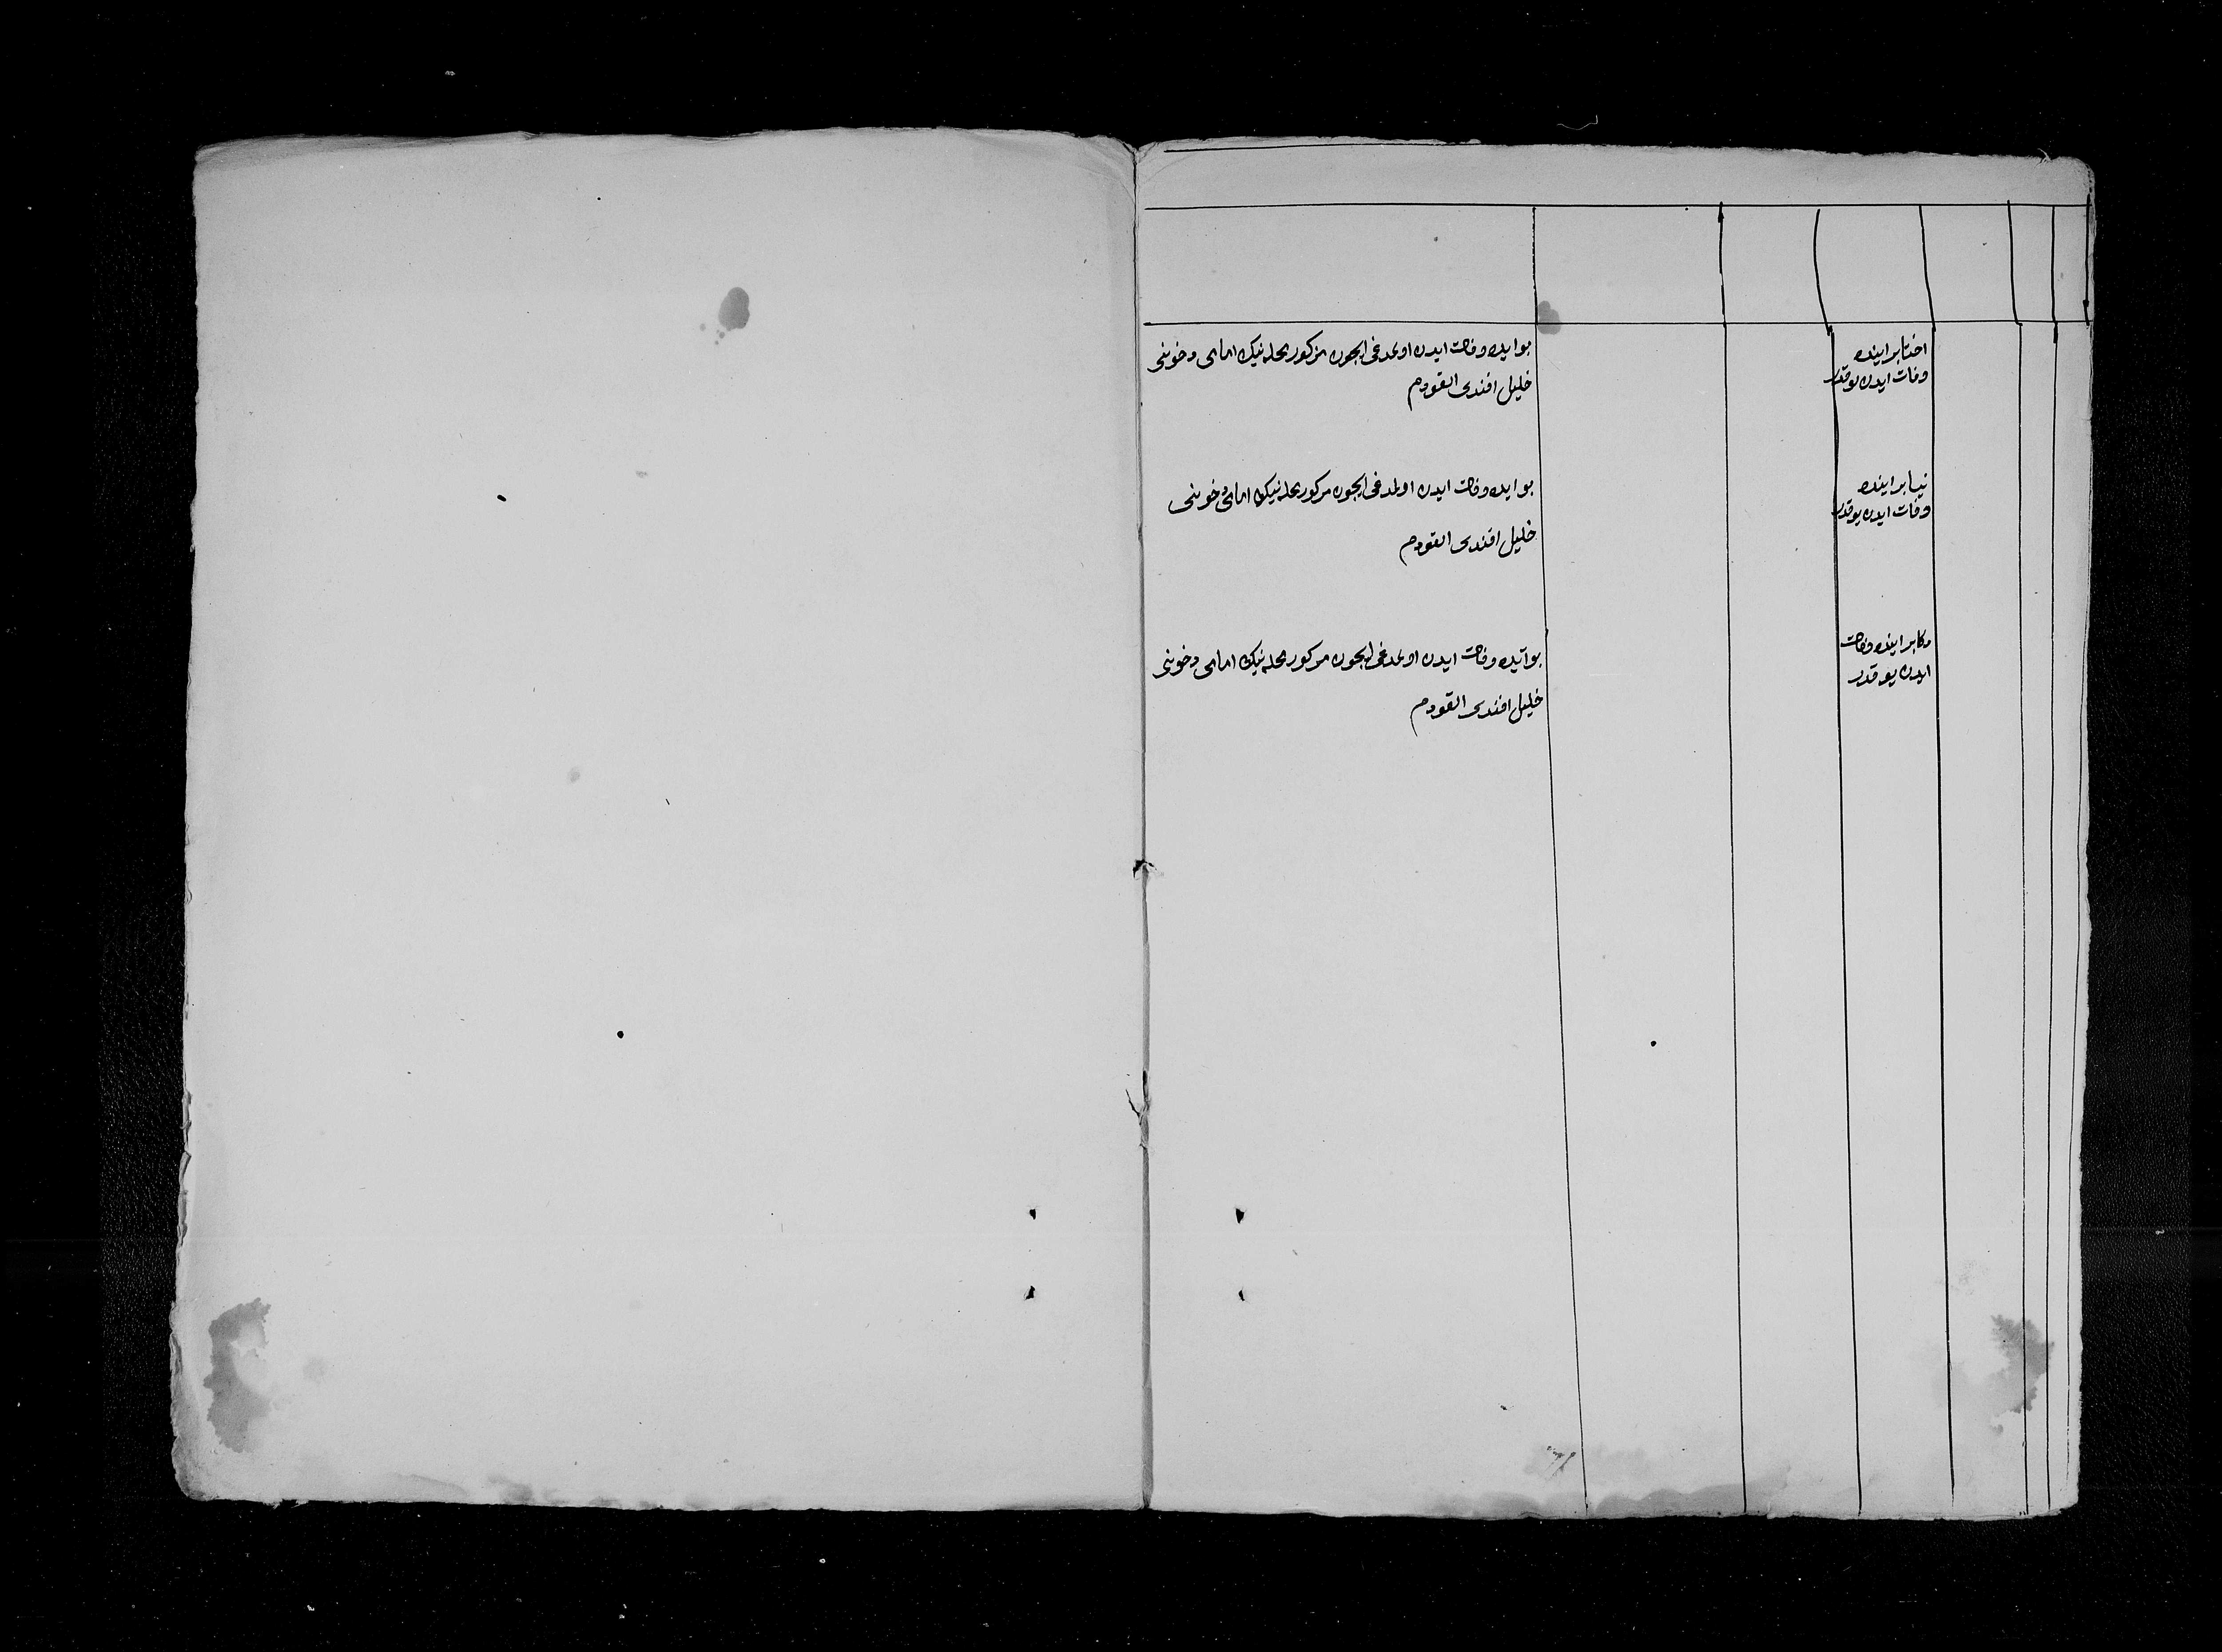 اختابر اینده
وفات ایدن یوقدر
بو ایده وفات ایدن اولمدغی ایچون مزکور محله نیك امامی و خونی
خلیل افندی القودم
نیابر اینده
وفات ایدن یوقدر
بو ایده وفات ایدن اولمدغی ایچون مزکور محله نیك امامی و خونی
خلیل افندی القودم
دکابر اینده وفات
ایدن یوقدر
بو آیده وفات ایدن اولمدغی ایچون مزکور محله نیك امامی و خونی
خلیل افندی القودم